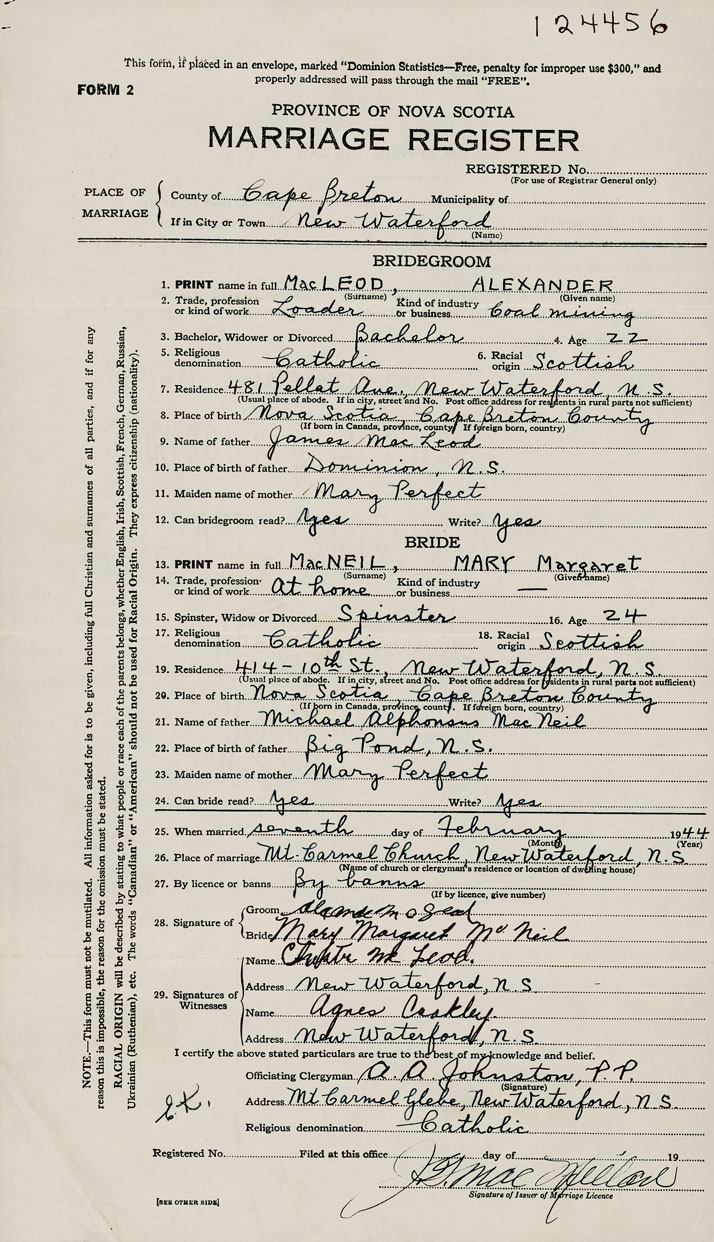 124456
This form, if placed in an envelope, marked "Dominion Statistics—Free, penalty for improper use $300," and
properly addressed will pass through the mail "FREE".
FORM 2
PROVINCE OF NOVA SCOTIA
MARRIAGE REGISTER
REGISTERED No.
(For use of Registrar General only)
PLACE OF MARRIAGE
County of Cape Breton Municipality of
If in City or Town New Waterford
(Name)
BRIDEGROOM
1. PRINT name in full MacLEOD, ALEXANDER
(Surname) (Given name)
2. Trade, profession or kind of work Loader Kind of industry or business Coal mining
3. Bachelor, Widower or Divorced Bachelor 4. Age 22
5. Religious denomination Catholic 6. Racial origin Scottish
7. Residence 481 Pellat Ave., New Waterford, N.S.
(Usual place of abode. If in city, street and No. Post office address for residents in rural parts not sufficient)
8. Place of birth Nova Scotia, Cape Breton County
(If born in Canada, province, county. If foreign born, country)
9. Name of father James MacLeod
10. Place of birth of father Dominion, N.S.
11. Maiden name of mother Mary Perfect
12. Can bridegroom read? Yes Write? Yes
BRIDE
13. PRINT name in full MacNEIL, MARY Margaret
(Surname) (Given name)
14. Trade, profession or kind of work At home Kind of industry or business —
15. Spinster, Widow or Divorced Spinster 16. Age 24
17. Religious denomination Catholic 18. Racial origin Scottish
19. Residence 414-10th St., New Waterford, N.S.
(Usual place of abode. If in city, street and No. Post office address for residents in rural parts not sufficient)
20. Place of birth Nova Scotia, Cape Breton County
(If born in Canada, province, county. If foreign born, country)
21. Name of father Michael Alphonsus MacNeil
22. Place of birth of father Big Pond, N.S.
23. Maiden name of mother Mary Perfect
24. Can bride read? Yes Write? Yes
25. When married seventh day of February 1944
(Month) (Year)
26. Place of marriage Mt. Carmel Church, New Waterford, N.S.
(Name of church or clergyman's residence or location of dwelling house)
27. By licence or banns By banns
(If by licence, give number)
28. Signature of
Groom
Bride Mary Margaret McNeil
29. Signatures of Witnesses
Name Mc Leod.
Address New Waterford, N.S
Name Agnes Coakley
Address New Waterford, N.S.
I certify the above stated particulars are true to the best of my knowledge and belief.
Officiating Clergyman A. A. Johnston, P.P.
(Signature)
Address Mt Carmel Glebe, New Waterford, N.S.
Religious denomination Catholic
Registered No. Filed at this office day of 19
Signature of Issuer of Marriage Licence
[SEE OTHER SIDE]
NOTE.—This form must not be mutilated. All information asked for is to be given, including full Christian and surnames of all parties, and if for any
reason this is impossible, the reason for the omission must be stated.
RACIAL ORIGIN will be described by stating to what people or race each of the parents belongs, whether English, Irish, Scottish, French, German, Russian,
Ukrainian (Ruthenian), etc. The words "Canadian" or "American" should not be used for Racial Origin. They express citizenship (nationality).